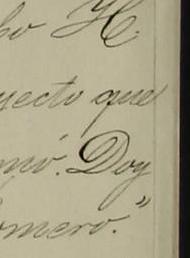 bo H.
yecto que
mó. Doy
omero."